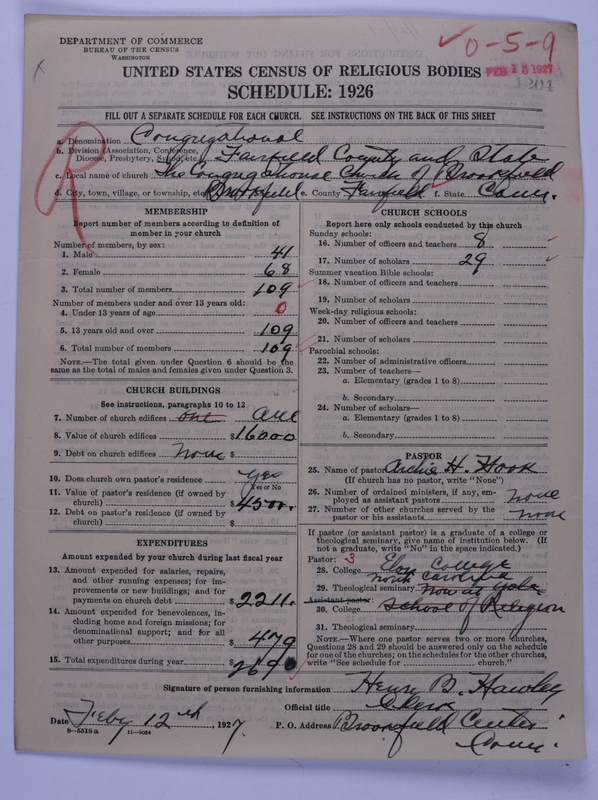 DEPARTMENT OF COMMERCE
BUREAU OF THE CENSUS
WASHINGTON
0-5-9
FEB 15 1927
UNITED STATES CENSUS OF RELIGIOUS BODIES
SCHEDULE: 1926
FILL OUT A SEPARATE SCHEDULE FOR EACH CHURCH. SEE INSTRUCTIONS ON THE BACK OF THIS SHEET
R
a. Denomination Congregational
b. Division (Association, Conference, Diocese, Presbytery, Synod, etc.) Fairfield County and State
c. Local name of church The Congregational Church of Brookfield
d. City, town, village, or township, etc. Brookfield e. County Fairfield f. State Conn.
MEMBERSHIP
Report number of members according to definition of
member in your church
Number of members, by sex:
1. Male 41
2. Female 68
3. Total number of members 109
Number of members under and over 13 years old:
4. Under 13 years of age 0
5. 13 years old and over 109
6. Total number of members 109
NOTE.—The total given under Question 6 should be the
same as the total of males and females given under Question 3.
CHURCH BUILDINGS
See instructions, paragraphs 10 to 12
7. Number of church edifices one one
8. Value of church edifices $16000
9. Debt on church edifices None $
10. Does church own pastor's residence Yes
Yes or No
11. Value of pastor's residence (if owned by
church) $4500.
12. Debt on pastor's residence (if owned by
church) $
EXPENDITURES
Amount expended by your church during last fiscal year
13. Amount expended for salaries, repairs,
and other running expenses; for im-
provements or new buildings; and for
payments on church debt $2211.
14. Amount expended for benevolences, in-
cluding home and foreign missions; for
denominational support; and for all
other purposes $479
15. Total expenditures during year $2690
CHURCH SCHOOLS
Report here only schools conducted by this church
Sunday schools:
16. Number of officers and teachers 8
17. Number of scholars 29
Summer vacation Bible schools:
18. Number of officers and teachers
19. Number of scholars
Week-day religious schools:
20. Number of officers and teachers
21. Number of scholars
Parochial schools:
22. Number of administrative officers
23. Number of teachers—
a. Elementary (grades 1 to 8)
b. Secondary
24. Number of scholars—
a. Elementary (grades 1 to 8)
b. Secondary
PASTOR
25. Name of pastor Archie H. Hook
(If church has no pastor, write "None")
26. Number of ordained ministers, if any, em-
ployed as assistant pastors none
27. Number of other churches served by the
pastor or his assistants none
If pastor (or assistant pastor) is a graduate of a college or
theological seminary, give name of institution below. (If
not a graduate, write "No" in the space indicated.)
Pastor: 3
28. College Elon College
North Carolina
29. Theological seminary now at Yale
Assistant pastor:
30. College School of Religion
31. Theological seminary
NOTE.—Where one pastor serves two or more churches,
Questions 28 and 29 should be answered only on the schedule
for one of the churches; on the schedules for the other churches,
write "See schedule for church."
Signature of person furnishing information Henry B. Hawley
Official title Clerk
Date Feby 12th, 1927.
P. O. Address Brookfield Center
Conn.
8-5518a 11-9034